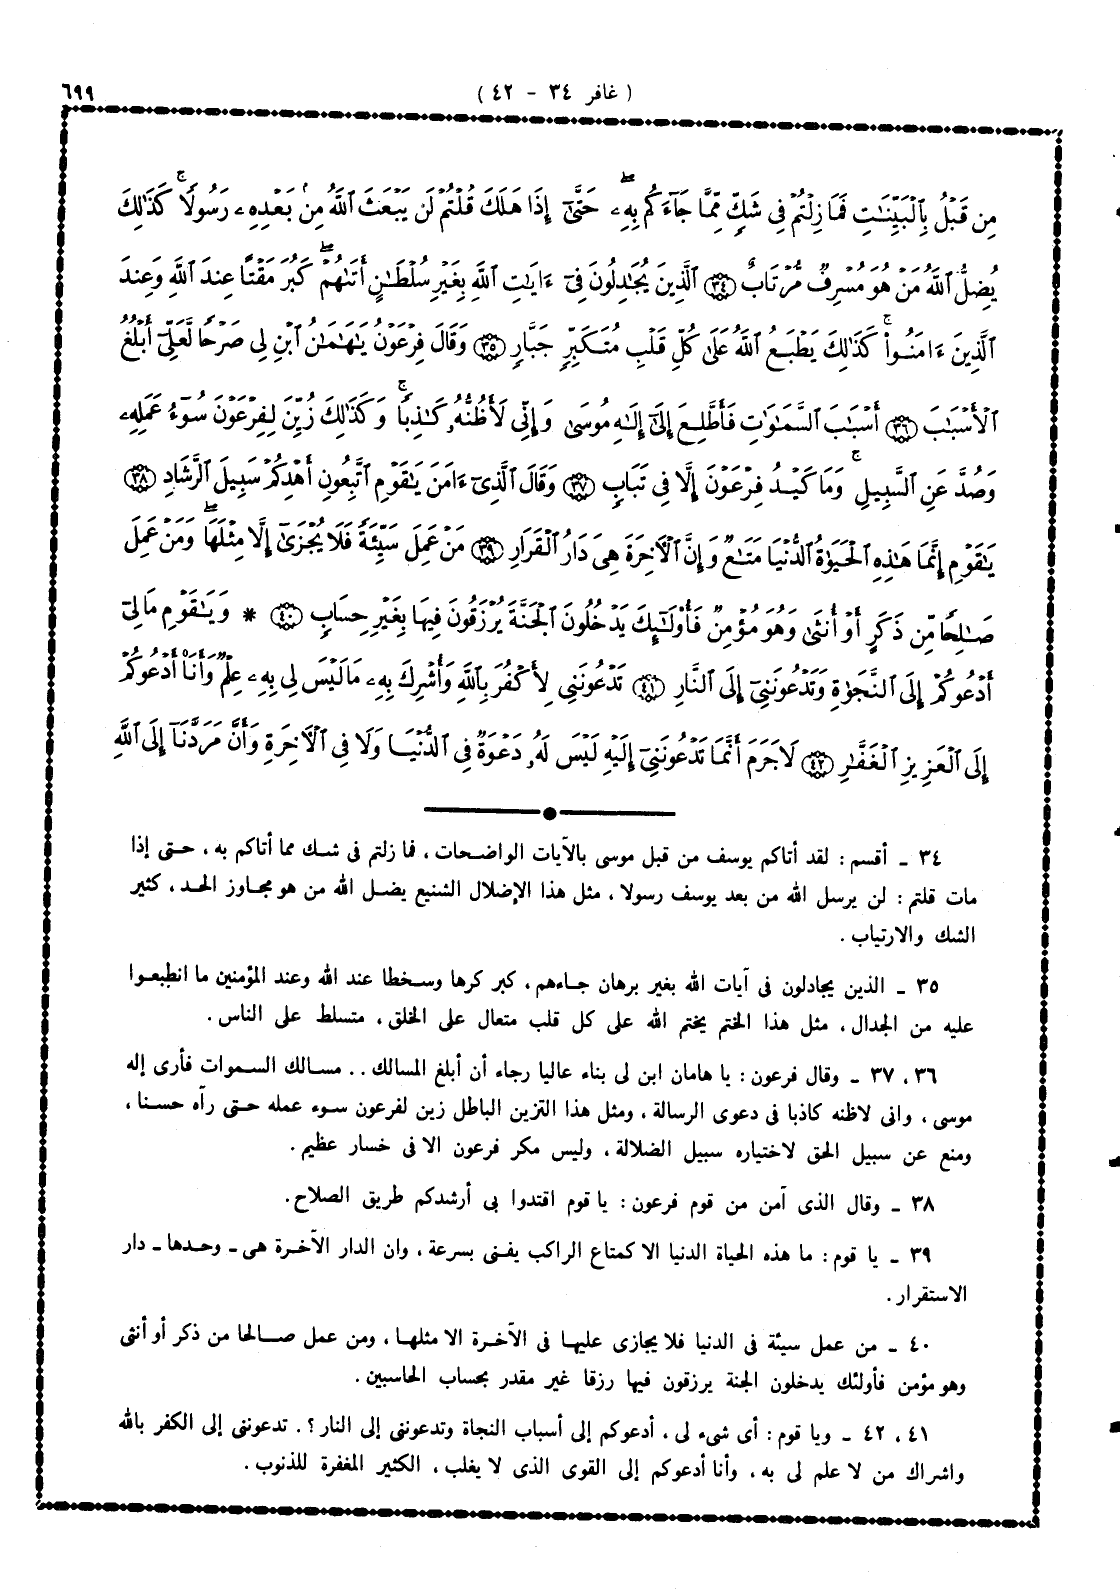 ٦٩٩
( غافر ٣٤ - ٤٢ )
مِن قَبْلُ بِٱلْبَيِّنَٰتِ فَمَا زِلْتُمْ فِى شَكٍّ مِّمَّا جَآءَكُم بِهِۦ ۖ حَتَّىٰٓ إِذَا هَلَكَ قُلْتُمْ لَن يَبْعَثَ ٱللَّهُ مِنۢ بَعْدِهِۦ رَسُولًا ۚ كَذَٰلِكَ
يُضِلُّ ٱللَّهُ مَنْ هُوَ مُسْرِفٌ مُّرْتَابٌ ﴿٣٤﴾ ٱلَّذِينَ يُجَٰدِلُونَ فِىٓ ءَايَٰتِ ٱللَّهِ بِغَيْرِ سُلْطَٰنٍ أَتَىٰهُمْ ۖ كَبُرَ مَقْتًا عِندَ ٱللَّهِ وَعِندَ
ٱلَّذِينَ ءَامَنُوا۟ ۚ كَذَٰلِكَ يَطْبَعُ ٱللَّهُ عَلَىٰ كُلِّ قَلْبِ مُتَكَبِّرٍ جَبَّارٍ ﴿٣٥﴾ وَقَالَ فِرْعَوْنُ يَٰهَٰمَٰنُ ٱبْنِ لِى صَرْحًا لَّعَلِّىٓ أَبْلُغُ
ٱلْأَسْبَٰبَ ﴿٣٦﴾ أَسْبَٰبَ ٱلسَّمَٰوَٰتِ فَأَطَّلِعَ إِلَىٰٓ إِلَٰهِ مُوسَىٰ وَإِنِّى لَأَظُنُّهُۥ كَٰذِبًا ۚ وَكَذَٰلِكَ زُيِّنَ لِفِرْعَوْنَ سُوٓءُ عَمَلِهِۦ
وَصُدَّ عَنِ ٱلسَّبِيلِ ۚ وَمَا كَيْدُ فِرْعَوْنَ إِلَّا فِى تَبَابٍ ﴿٣٧﴾ وَقَالَ ٱلَّذِىٓ ءَامَنَ يَٰقَوْمِ ٱتَّبِعُونِ أَهْدِكُمْ سَبِيلَ ٱلرَّشَادِ ﴿٣٨﴾
يَٰقَوْمِ إِنَّمَا هَٰذِهِ ٱلْحَيَوٰةُ ٱلدُّنْيَا مَتَٰعٌ وَإِنَّ ٱلْءَاخِرَةَ هِىَ دَارُ ٱلْقَرَارِ ﴿٣٩﴾ مَنْ عَمِلَ سَيِّئَةً فَلَا يُجْزَىٰٓ إِلَّا مِثْلَهَا ۖ وَمَنْ عَمِلَ
صَٰلِحًا مِّن ذَكَرٍ أَوْ أُنثَىٰ وَهُوَ مُؤْمِنٌ فَأُو۟لَٰٓئِكَ يَدْخُلُونَ ٱلْجَنَّةَ يُرْزَقُونَ فِيهَا بِغَيْرِ حِسَابٍ ﴿٤٠﴾ * وَيَٰقَوْمِ مَالِىٓ
أَدْعُوكُمْ إِلَى ٱلنَّجَوٰةِ وَتَدْعُونَنِىٓ إِلَى ٱلنَّارِ ﴿٤١﴾ تَدْعُونَنِى لِأَكْفُرَ بِٱللَّهِ وَأُشْرِكَ بِهِۦ مَا لَيْسَ لِى بِهِۦ عِلْمٌ وَأَنَا۠ أَدْعُوكُمْ
إِلَى ٱلْعَزِيزِ ٱلْغَفَّٰرِ ﴿٤٢﴾ لَا جَرَمَ أَنَّمَا تَدْعُونَنِىٓ إِلَيْهِ لَيْسَ لَهُۥ دَعْوَةٌ فِى ٱلدُّنْيَا وَلَا فِى ٱلْءَاخِرَةِ وَأَنَّ مَرَدَّنَآ إِلَى ٱللَّهِ
٣٤ ـ أقسم : لقد أتاكم يوسف من قبل موسى بالآيات الواضحات ، فما زلتم فى شك مما أتاكم به ، حتى إذا
مات قلتم : لن يرسل الله من بعد يوسف رسولا ، مثل هذا الإضلال الشنيع يضل الله من هو مجاوز الحد ، كثير
الشك والارتياب .
٣٥ ـ الذين يجادلون فى آيات الله بغير برهان جاءهم ، كبر كرها وسخطا عند الله وعند المؤمنين ما انطبعوا
عليه من الجدال ، مثل هذا الختم يختم الله على كل قلب متعال على الخلق ، متسلط على الناس .
٣٦ ، ٣٧ ـ وقال فرعون : يا هامان ابن لى بناء عاليا رجاء أن أبلغ المسالك . . مسالك السموات فأرى إله
موسى ، وانى لاظنه كاذبا فى دعوى الرسالة ، ومثل هذا التزين الباطل زين لفرعون سوء عمله حتى رآه حسنا ،
ومنع عن سبيل الحق لاختياره سبيل الضلالة ، وليس مكر فرعون الا فى خسار عظيم .
٣٨ ـ وقال الذى آمن من قوم فرعون : يا قوم اقتدوا بى أرشدكم طريق الصلاح .
٣٩ ـ يا قوم : ما هذه الحياة الدنيا الا كمتاع الراكب يفنى بسرعة ، وان الدار الآخرة هى ـ وحدها ـ دار
الاستقرار .
٤٠ ـ من عمل سيئة فى الدنيا فلا يجازى عليها فى الآخرة الا مثلها ، ومن عمل صالحا من ذكر أو أنثى
وهو مؤمن فأولئك يدخلون الجنة يرزقون فيها رزقا غير مقدر بحساب الحاسبين .
٤١ ، ٤٢ ـ ويا قوم : أى شىء لى ، أدعوكم إلى أسباب النجاة وتدعوننى إلى النار ؟ . تدعوننى إلى الكفر بالله
واشراك من لا علم لى به ، وأنا أدعوكم إلى القوى الذى لا يغلب ، الكثير المغفرة للذنوب .